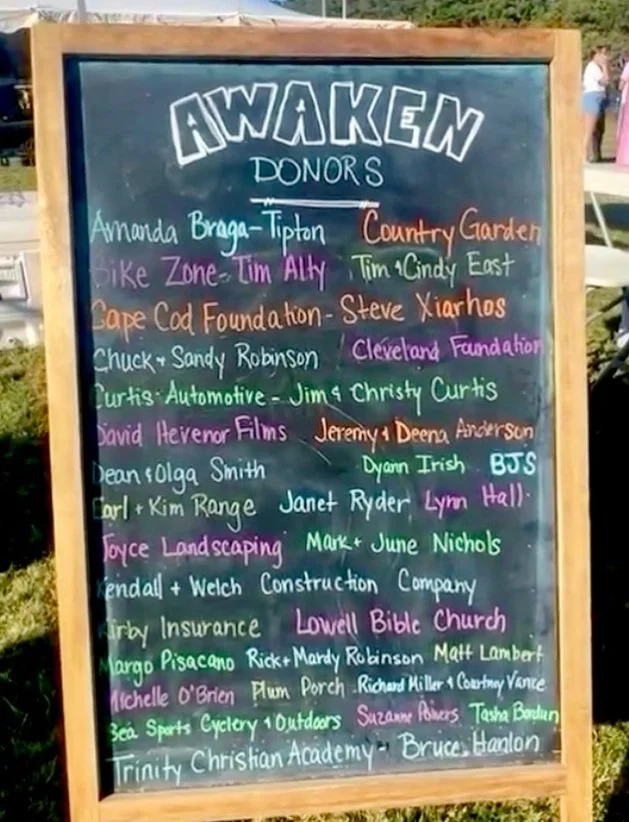 AWAKEN
DONORS
Amanda Braga-Tipton Country Garden
Bike Zone- Tim Alty Tim & Cindy East
Cape Cod Foundation - Steve Xiarhos
Chuck + Sandy Robinson Cleveland Foundation
Curtis Automotive - Jim & Christy Curtis
David Hevenor Films Jeremy & Deena Anderson
Dean & Olga Smith Dyann Irish BJS
Earl + Kim Range Janet Ryder Lynn Hall
Joyce Landscaping Mark + June Nichols
Kendall + Welch Construction Company
Kirby Insurance Lowell Bible Church
Margo Pisacano Rick + Mardy Robinson Matt Lambert
Michelle O'Brien Plum Porch Richard Miller & Courtney Vance
Sea Sports Cyclery & Outdoors Suzanne Powers Tasha
Trinity Christian Academy - Bruce Hanlon